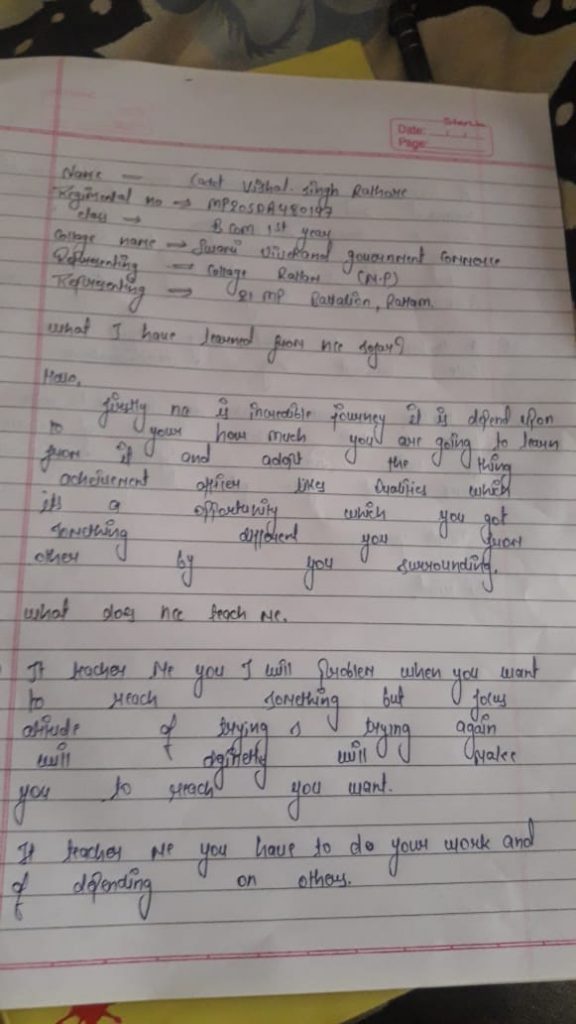 Date:
Page:
Name — Cadet Vishal. Singh Rathore
Regimental no → MP20SDA480197
class → B com 1st year
Collage name → Swami Vivekand government commerce
Representing → Collage Ratlam (M.P)
Representing → 21 MP Battalion, Ratlam.
what I have learned from ncc sofar?
Firstly ncc is increadible journey it is depend upon
to your how much you are going to learn
from it and adopt the thing
acheivement officer likes Qualities which
its a opportunity which you got
something different you from
other by you surrounding.
what does ncc teach me.
It teaches me you I will problem when you want
to reach something but
of trying & trying again
will definetly will make
you to reach you want.
It teaches me you have to do your work and
of depending on others.